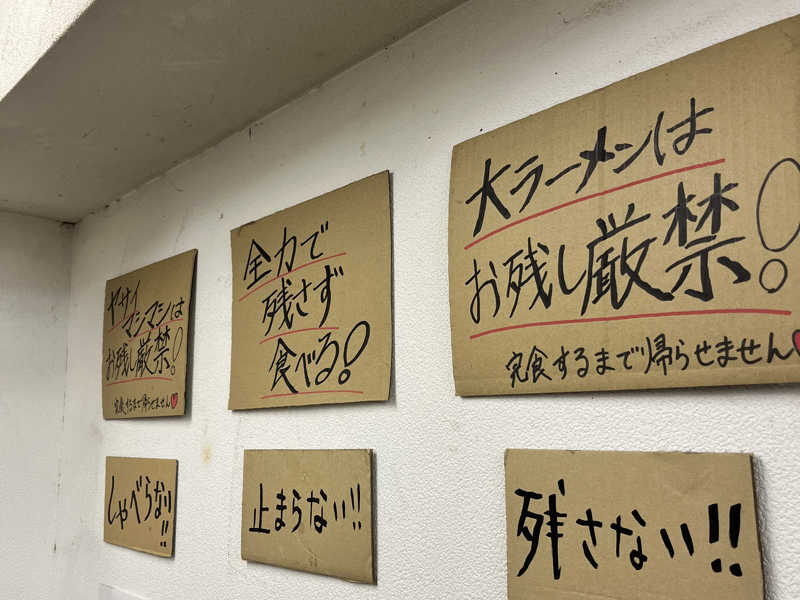 ヤサイ
マシマシは
お残し厳禁!
完食するまで帰らせません
全力で
残さず
食べる!
大ラーメンは
お残し厳禁!
完食するまで帰らせません
しゃべらない!!
止まらない!!
残さない!!